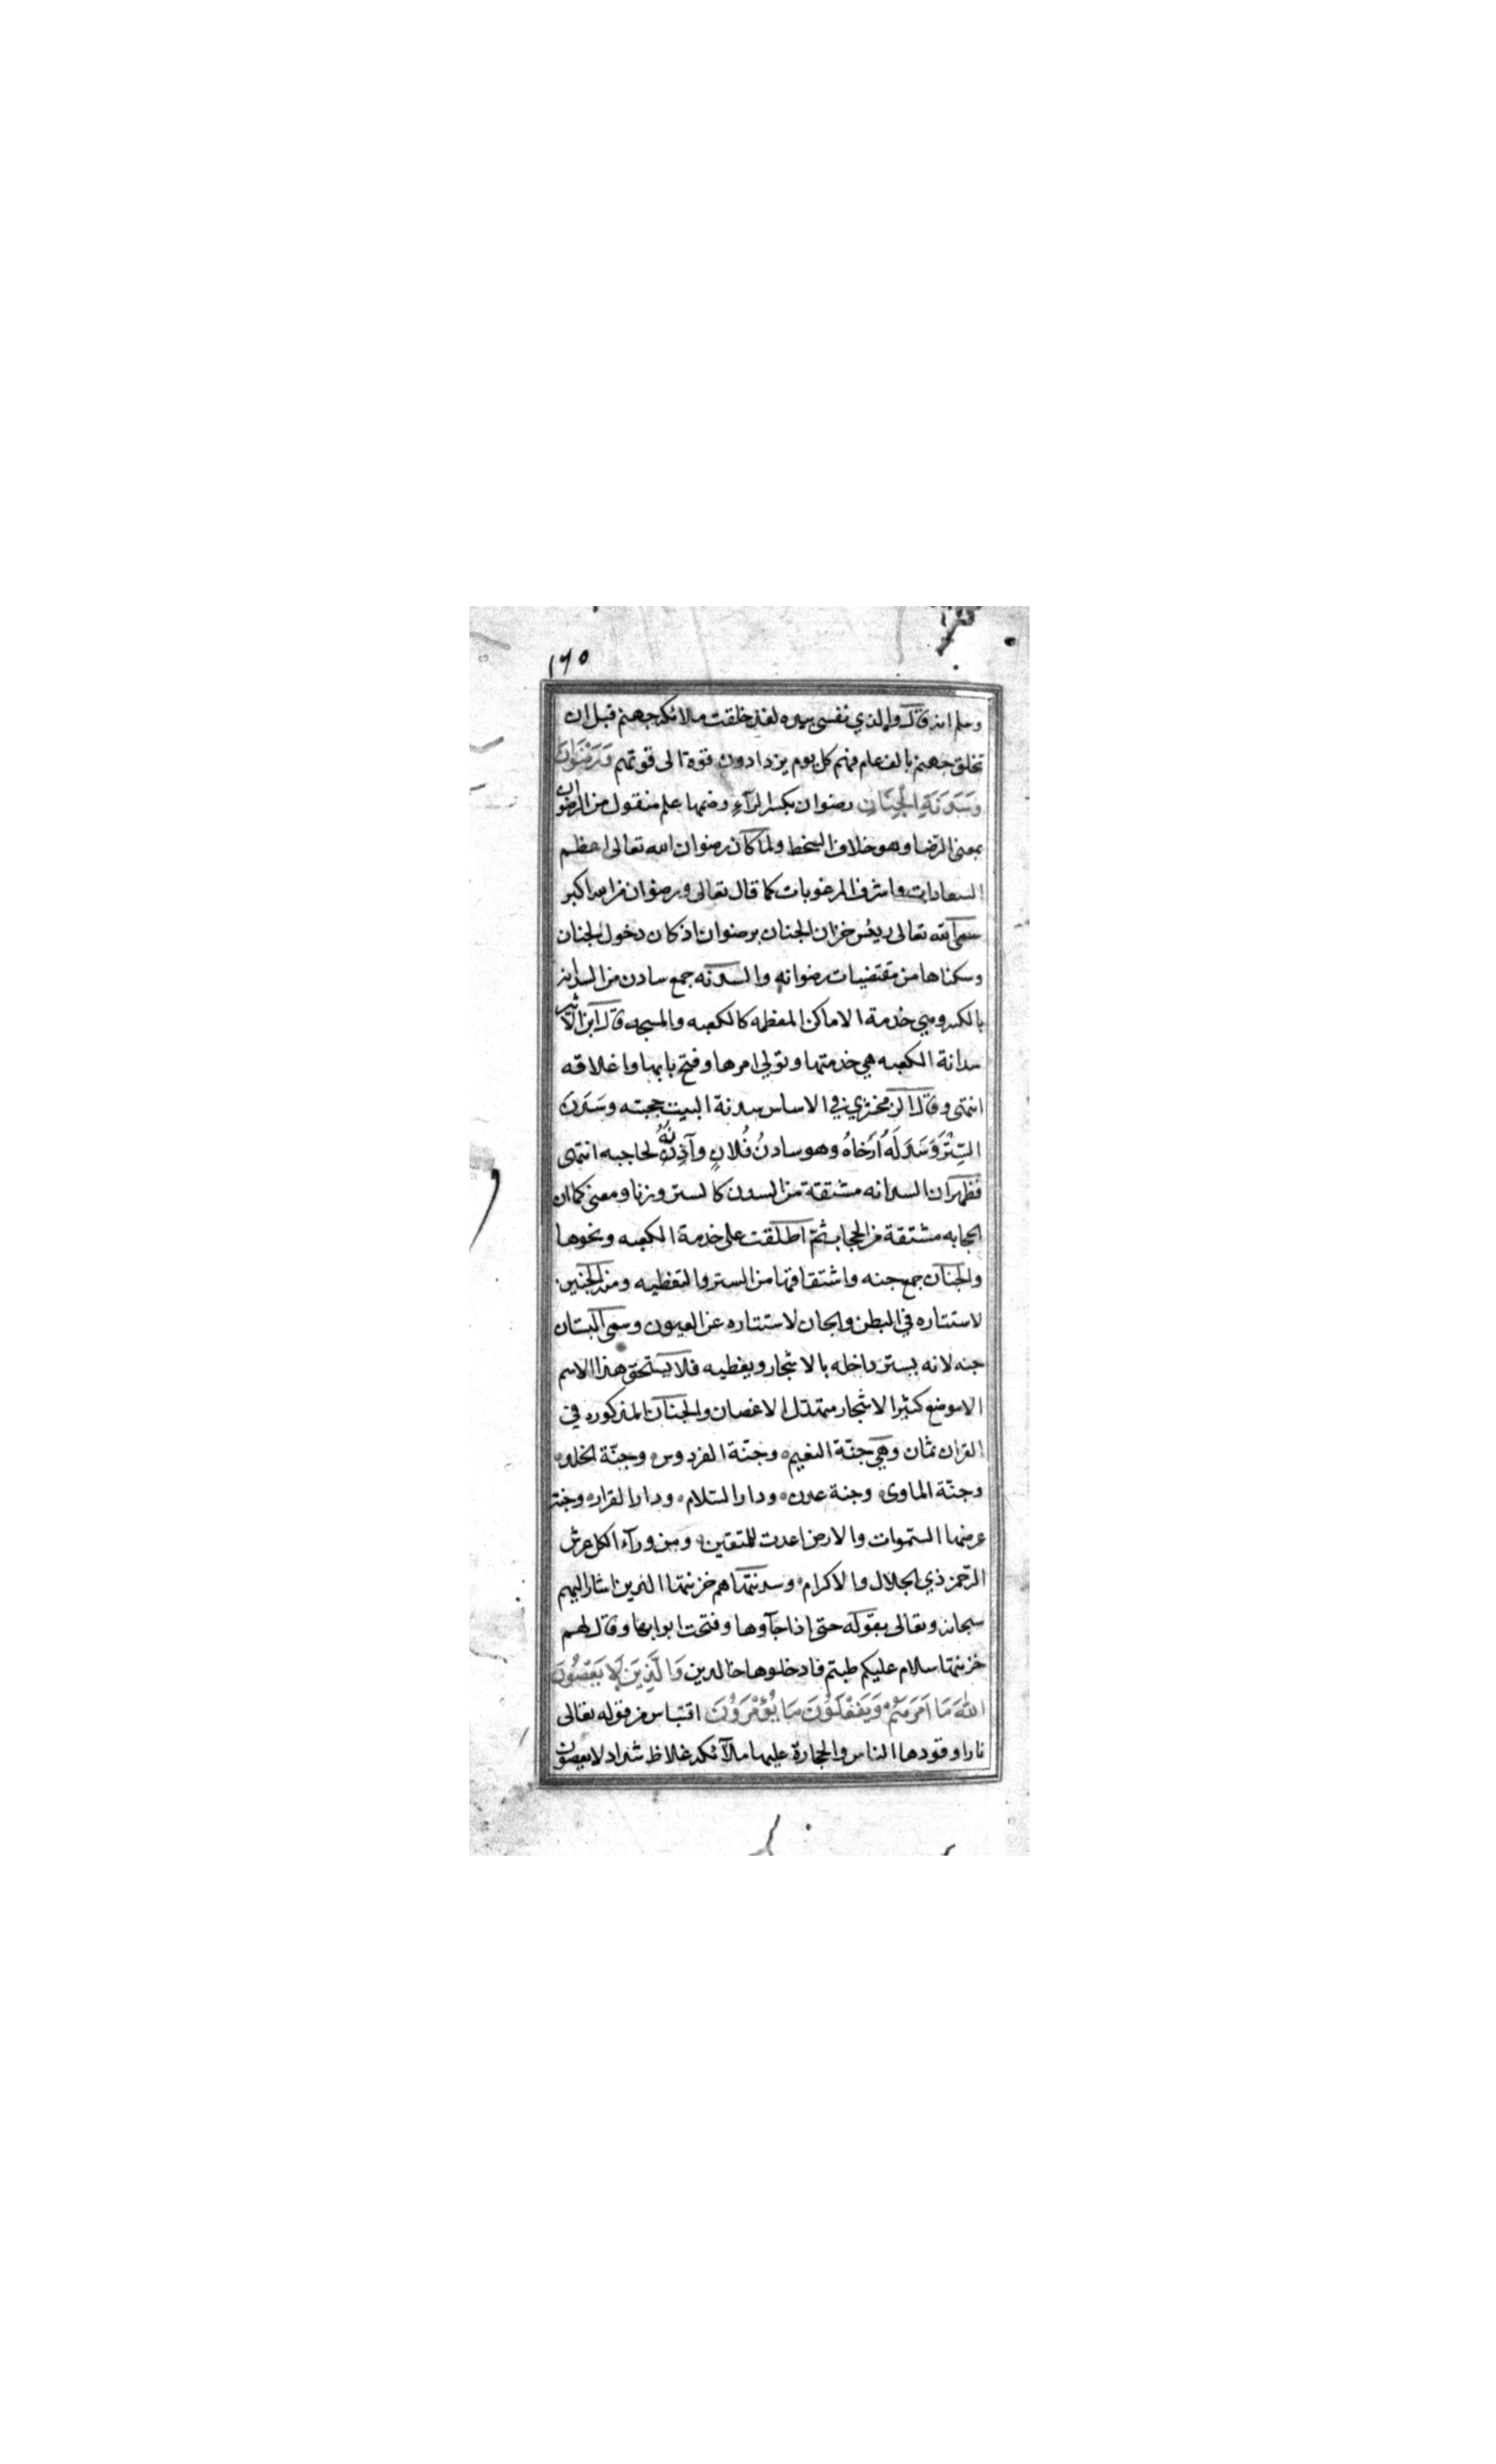 ١٦٥
وسلم انه قال والذي نفسي بيده لقد خلقت ملائكة جهنم قبل ان
تخلق جهنم بالف عام فهم كل يوم يزدادون قوة الى قوتهم وَرَضْوَانَ
وَسَدَنَةِ الْجِنَانِ رضوان بكسر الرآء وضمها علم منقول من الرضوان
بمعنى الرضا وهو خلاف السخط ولما كان رضوان الله تعالى اعظم
السعادات واشرف المرغوبات كما قال تعالى ورضوان من الله اكبر
سمى الله تعالى رئيس خزان الجنان برضوان اذ كان دخول الجنان
وسكناها من مقتضيات رضوانه والسدنه جمع سادن من السدانة
بالكسر وهي خدمة الاماكن المعظمه كالكعبه والمسجد قال ابن الاثير
سدانة الكعبه هي خدمتها وتولي امرها وفتح بابها واغلاقه
انتهى وقال الزمخشري في الاساس سدنة البيت حجبته وسَدَنَ
السِّتْرَ وَسَدَلَهُ اَرْخَاهُ وهو سادنُ فُلانٍ وآذِنُهُ لحاجبه انتهى
فظهر ان السدانه مشتقة من السدن كالستر وزنا ومعنى كما ان
الحجابه مشتقة من الحجاب ثمّ اطلقت على خدمة الكعبه ونحوها
والجنان جمع جنه واشتقاقها من الستر والتغطيه ومنه الجنين
لاستتاره في البطن والجان لاستتاره عن العيون وسمى البستان
جنه لانه يستر داخله بالاشجار ويغطيه فلا يستحق هذا الاسم
الا موضع كثير الاشجار متهدل الاغصان والجنان المذكوره في
القران ثمان وهي جنّة النعيم وجنّة الفردوس وجنّة الخلد
وجنّة الماوى وجنة عدن ودار السّلام ودار القرار وجنة
عرضها السّموات والارض اعدت للمتقين ومن ورآء الكل عرش
الرّحمن ذي الجلال والاكرام وسدنتها هم خزنتها الذين اشار اليهم
سبحانه وتعالى بقوله حتى إذا جآؤها وفتحت ابوابها وقال لهم
خزنتها سلام عليكم طبتم فادخلوها خالدين وَالَّذِينَ لَا يَعْصُونَ
اللهَ مَا اَمَرَهُمْ وَيَفْعَلُونَ مَا يُؤْمَرُونَ اقتباس من قوله تعالى
نارا وقودها الناس والحجارة عليها ملآئكة غلاظ شداد لا يعصون